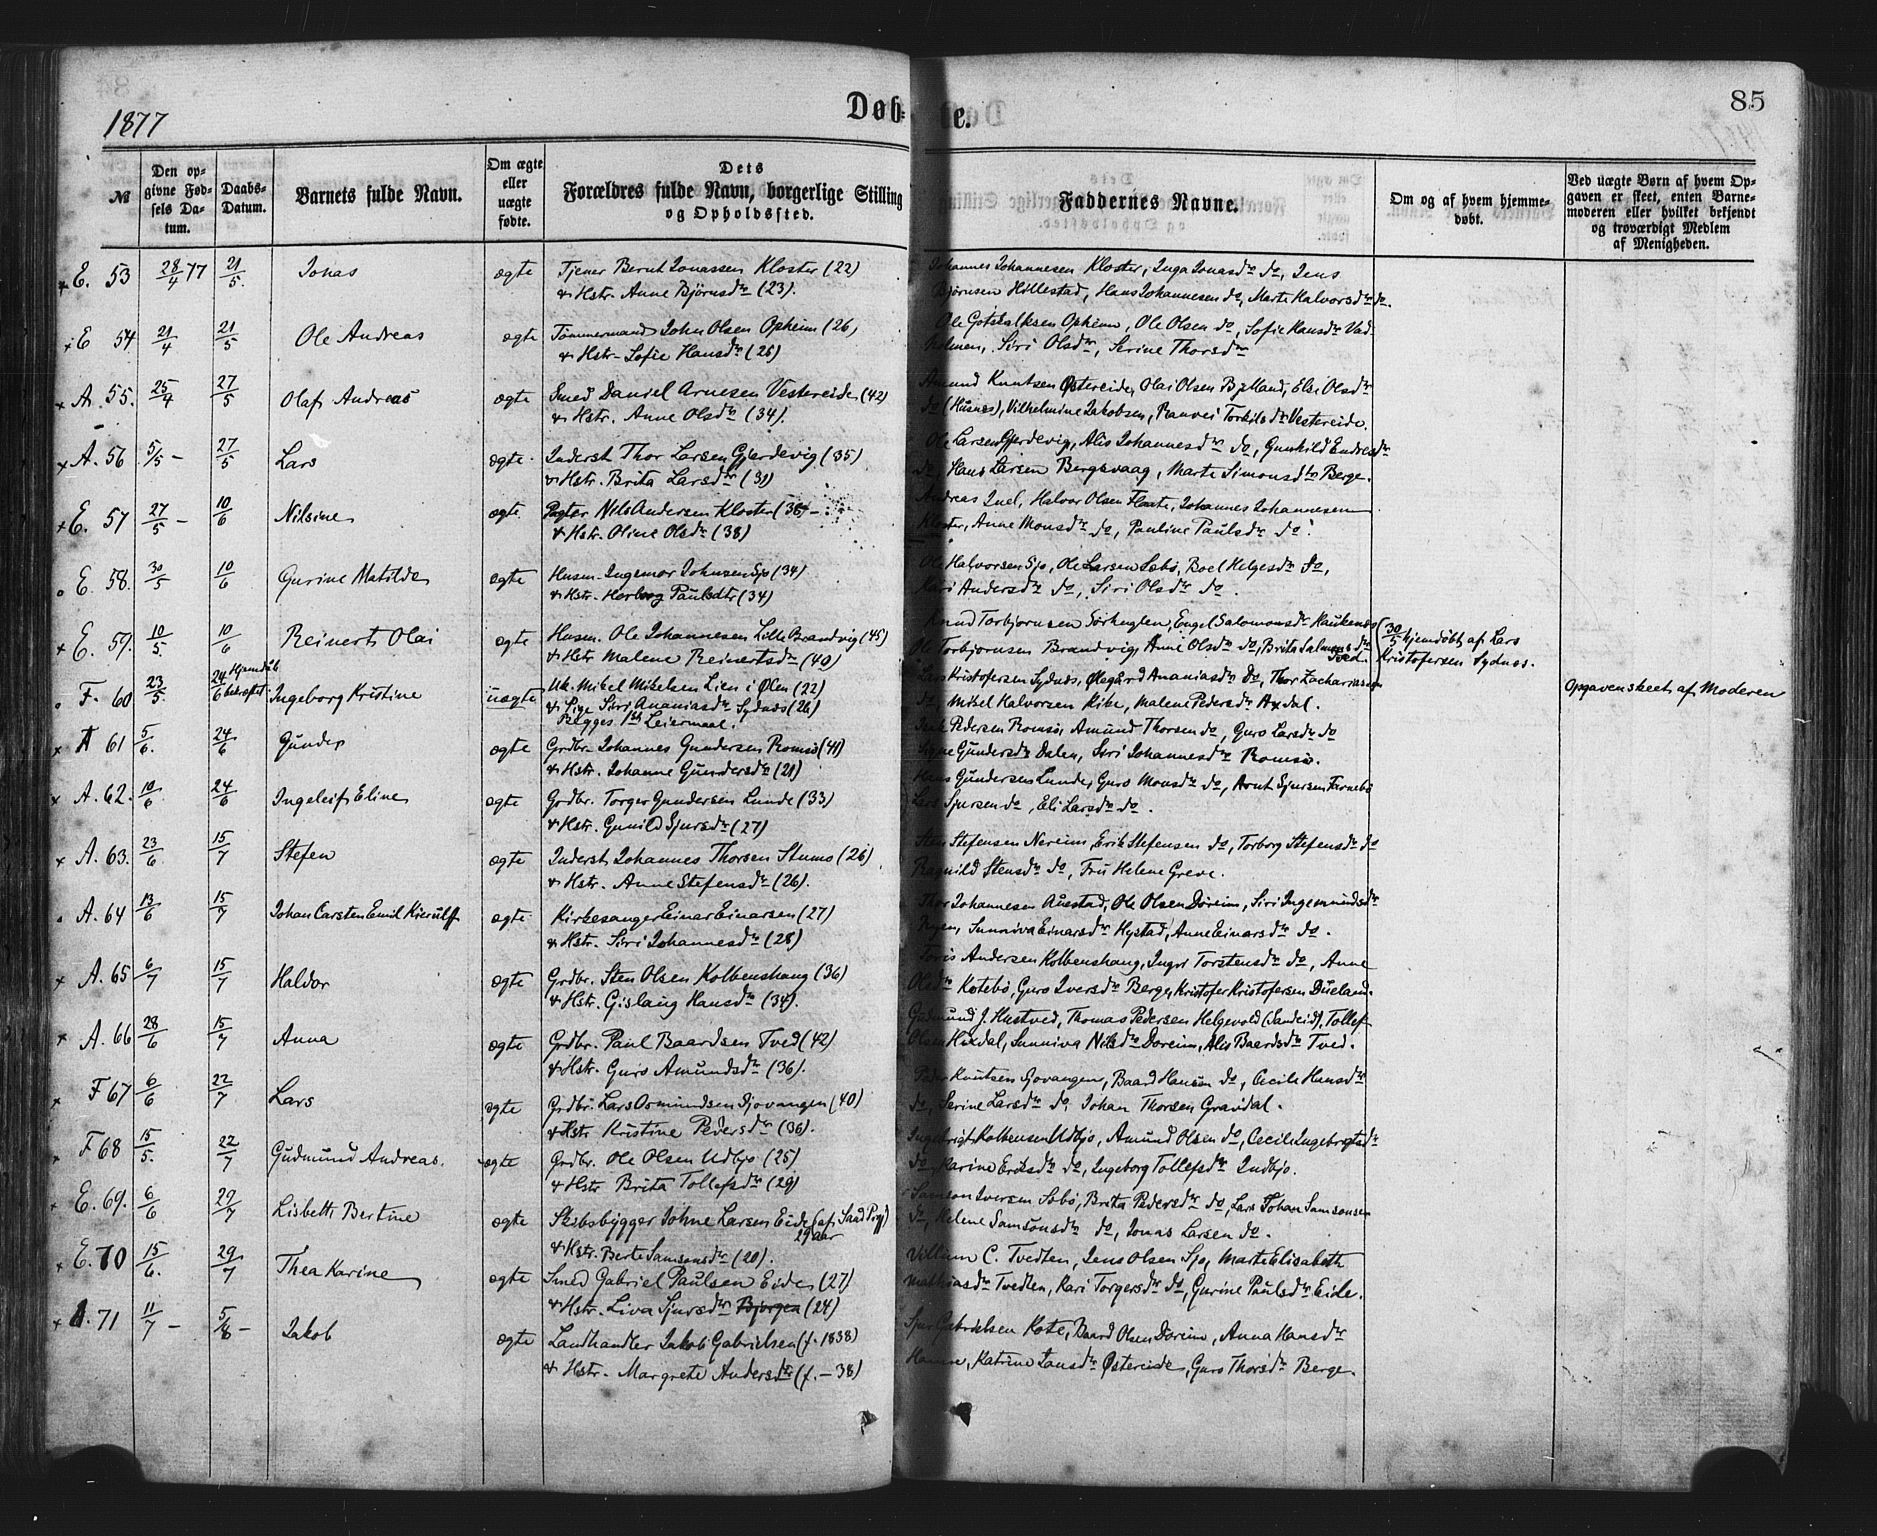 1877
Døb-
te.
85
№
Den opgivne Fødsels Datum.
Daabs-Datum.
Barnets fulde Navn.
Om ægte eller uægte fødte.
Dets Forældres fulde Navn, borgerlige Stilling og Opholdssted.
Faddernes Navne.
Om og af hvem hjemmedøbt.
Ved uægte Børn af hvem Opgaven er skeet, enten Barnemoderen eller hvilket bekjendt og troværdigt Medlem af Menigheden.
E. 53 28/4 77 21/5. Jonas ægte Tjener Bernt Jonassen Kloster (22)
& Hstr. Anne Bjørnsdtr (23).
Johannes Johannesen Kloster, Inga Jonasdtr do, Jens
Bjørnsen Hillestad, Hans Johannesen do, Marte Halvorsdtr do.
E 54 21/4 21/5 Ole Andreas ægte Tømmermand John Olsen Opheim (26)
& Hstr. Sofie Hansdtr (25)
Ole Gotskalksen Opheim, Ole Olsen do, Sofie Hansdtr Vad-
holmen, Siri Olsdtr, Serine Thorsdtr
A. 55. 25/4 27/5 Olaf Andreas ægte Smed Daniel Arnesen Vestereide (42)
& Hstr. Anne Olsdtr (34).
Amund Knutsen Østereide, Olai Olsen Bylland, Else Olsdtr
do (Husnes), Vilhelmine Jakobsen, Ranvei Torkilsdtr Vestereide.
A. 56 5/5 - 27/5 Lars ægte Inderst Thor Larsen Gjerdevig (35)
& Hstr. Brita Larsdtr (31)
Ole Larsen Gjerdevig, Alis Johannesdtr do, Gunhild Endresdtr
do Hans Larsen Bergsvaag, Marte Simonsdtr Berge.
E. 57 27/5 - 10/6 Nilsine ægte Pagter Nils Andersen Kloster (36) -
& Hstr. Oline Olsdtr (38)
Andreas Juel, Halvor Olsen Flaate, Johannes Johannesen
Kloster, Anne Monsdtr do, Pauline Paulsdtr do.
E. 58. 30/5 10/6 Gurine Matilde ægte Husm. Ingemor Johnsen Sjo (34)
& Hstr. Herborg Paulsdtr (34)
Ole Halvorsen Sjo, Ole Larsen Sæbø, Boel Helgesdtr do,
Kari Andersdtr do, Siri Olsdtr do.
E. 59. 10/5. 10/6 Reinert Olai ægte Husm. Ole Johannesen Lille Brandvig (45)
& Hstr Malene Reinertsdtr (40)
Knud Torbjørnsen Sørhuglen, Engel Salomonsdtr Haukenes
Ole Torbjørnsen Brandvig, Anne Olsdtr do, Brita Salmonsdtr
Tved.
30/5 hjemdøbt af Lars
Kristofersen Sydnes.
F. 60 23/5. 24/6 Hjemdåb bekræftet Ingeborg Kristine uægte Uk. Mikel Mikelsen Lien i Ølen (22)
& Pige Siri Ananiasdtr Sydnes (26)
Begges 1ste Leiermaal.
Lars Kristofersen Sydnes, Ølegård Ananiasdtr do, Thor Zachariassen
do, Mikel Halvorsen Rike, Malene Pedersdtr Axdal.
Opgaven skeet af Moderen
A 61 5/6. 24/6 Gunder ægte Grdbr. Johannes Gundersen Romsø (41)
& Hstr. Johanne Gundersdtr (21)
Pedersen Romsø, Amund Thorsen do, Guro Larsdtr do
Signe Gundersdtr Dalen, Siri Johannesdtr Romsø.
A. 62. 10/6 24/6 Ingeleif Eline ægte Grdbr. Torger Gundersen Lunde (33)
& Hstr. Gunild Sjursdtr (27)
Hans Gundersen Lunde, Guro Monsdtr do, Arnt Sjursen Ternebø
Lars Sjursen do, Eli Larsdtr do.
A. 63. 23/6 15/7 Stefen ægte Inderst Johannes Thorsen Stumo (26)
& Hstr. Anne Stefensdtr (26).
Sten Stefensen Nereim, Erik Stefensen do, Torborg Stefensdtr do
Ragnild Stensdtr do, Fru Helene Greve.
A. 64 13/6 15/7 Johan Carsten Emil Kierulff ægte Kirkesanger Einar Einarsen (27)
& Hstr. Siri Johannesdtr (28)
Thor Johannesen Austad, Ole Olsen Døreim, Siri Ingemundsdtr
Rygen, Sunniva Einarsdtr Hystad, Anne Einarsdtr do.
A. 65 6/7 15/7 Haldor ægte Grdbr. Sten Olsen Kolbenshaug (36)
& Hstr. Gislaug Hansdtr (34).
Andersen Kolbenshaug, Inger Torstensdtr do, Anne
Olsdtr Kotebø, Guro Iversdtr Berge, Kristofer Kristofersen Dueland.
A. 66 28/6 15/7 Anna ægte Grdbr. Paul Baardsen Tved (42)
& Hstr. Guro Amundsdtr (36).
Gudmund J. Hustved, Thomas Pedersen Helgevold (Sandeid), Tollef
Olsen Huxdal, Sunniva Nilsdtr Doreim, Alis Baardsdtr Tved.
F 67 6/6 22/7 Lars ægte Grdbr. Lars Osmundsen Djovangen (40)
& Hstr Kristine Pedersdtr (36).
Peder Knutsen Djovangen, Baard Hansen do, Cecile Hansdtr
do, Serine Larsdtr do, Johan Thorsen Gravdal.
F 68 15/5. 22/7 Gudmund Andreas. ægte Grdbr. Ole Olsen Udbjo (25)
& Hstr Brita Tollefsdtr (29)
Ingebrigt Kolbensen Udbjo, Amund Olsen do, Cecile Ingebrigtsdtr
do, Karine Eriksdtr do, Ingeborg Tollefsdtr Indbjo.
E. 69. 6/6 29/7 Lisbeth Bertine ægte Skibsbygger Johne Larsen Eide (af Saud Prgj)
29 Aar
& Hstr. Berte Samsonsdtr (20).
Samson Iversen Sæbø, Brita Pedersdtr do, Lars Johan Samsonsen
do, Helene Samsonsdtr do, Jonas Larsen do.
E. 70 15/6. 29/7 Thea Karine ægte Smed Gabriel Paulsen Eide (27)
& Hstr. Liva Sjursdtr Bjørgen (24)
Villum C. Tvedten, Jens Olsen Sjo, Marte Elisabeth
Mathiasdtr Tvedten, Kari Torgersdtr do, Gurine Paulsdtr Eide.
A. 71 11/7 - 5/8 - Jakob ægte Landhandler Jakob Gabrielsen (f. 1838)
& Hstr. Margrete Andersdtr (f. - 38)
Sjur Gabrielsen Kote, Baard Olsen Doreim, Anna Hansdtr
Hamre, Katrine Jansdtr Østereide, Guro Thorsdtr Berge.